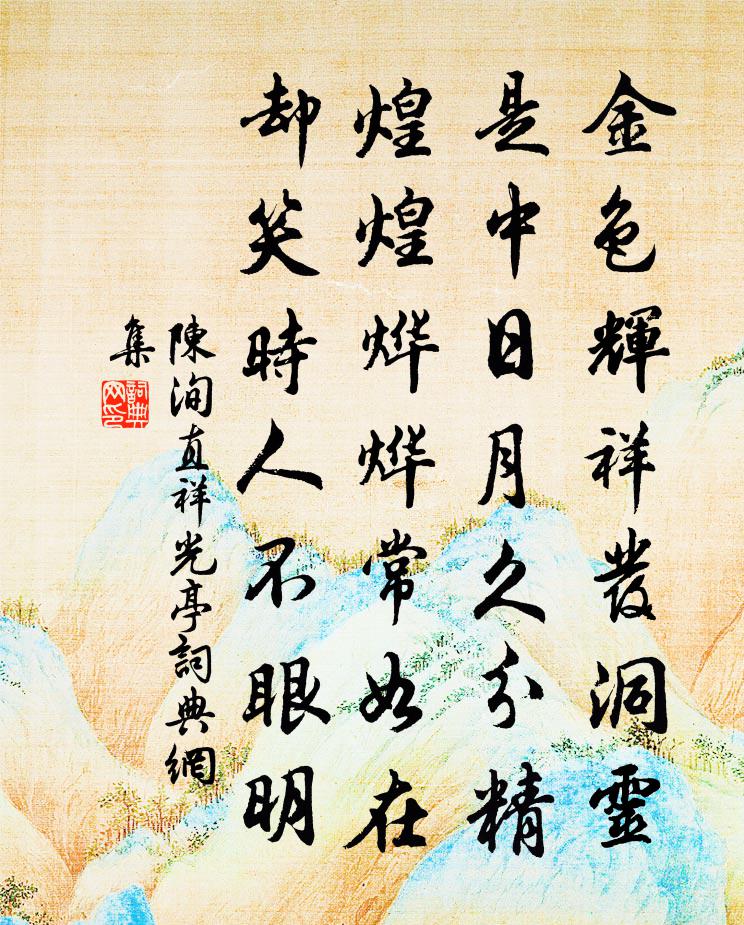 金色輝祥發洞靈
是中日月久分精
煌煌烨烨常如在
却笑時人不眼明
陳洵直祥光亭詞典網
集
詞典网印